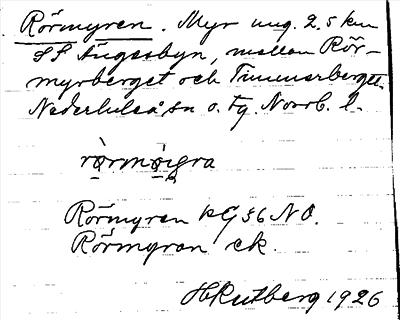 Rörmyren. Myr ung. 2.5 km
SS Ängesbyn, mellan Rör-
myrberget och Timmerberget.
Nederluleå sn o. fg. Norrb. l.
rörmöigra
Rörmyren kG 36 NO.
Rörmyran ek.
H Rutberg 1926